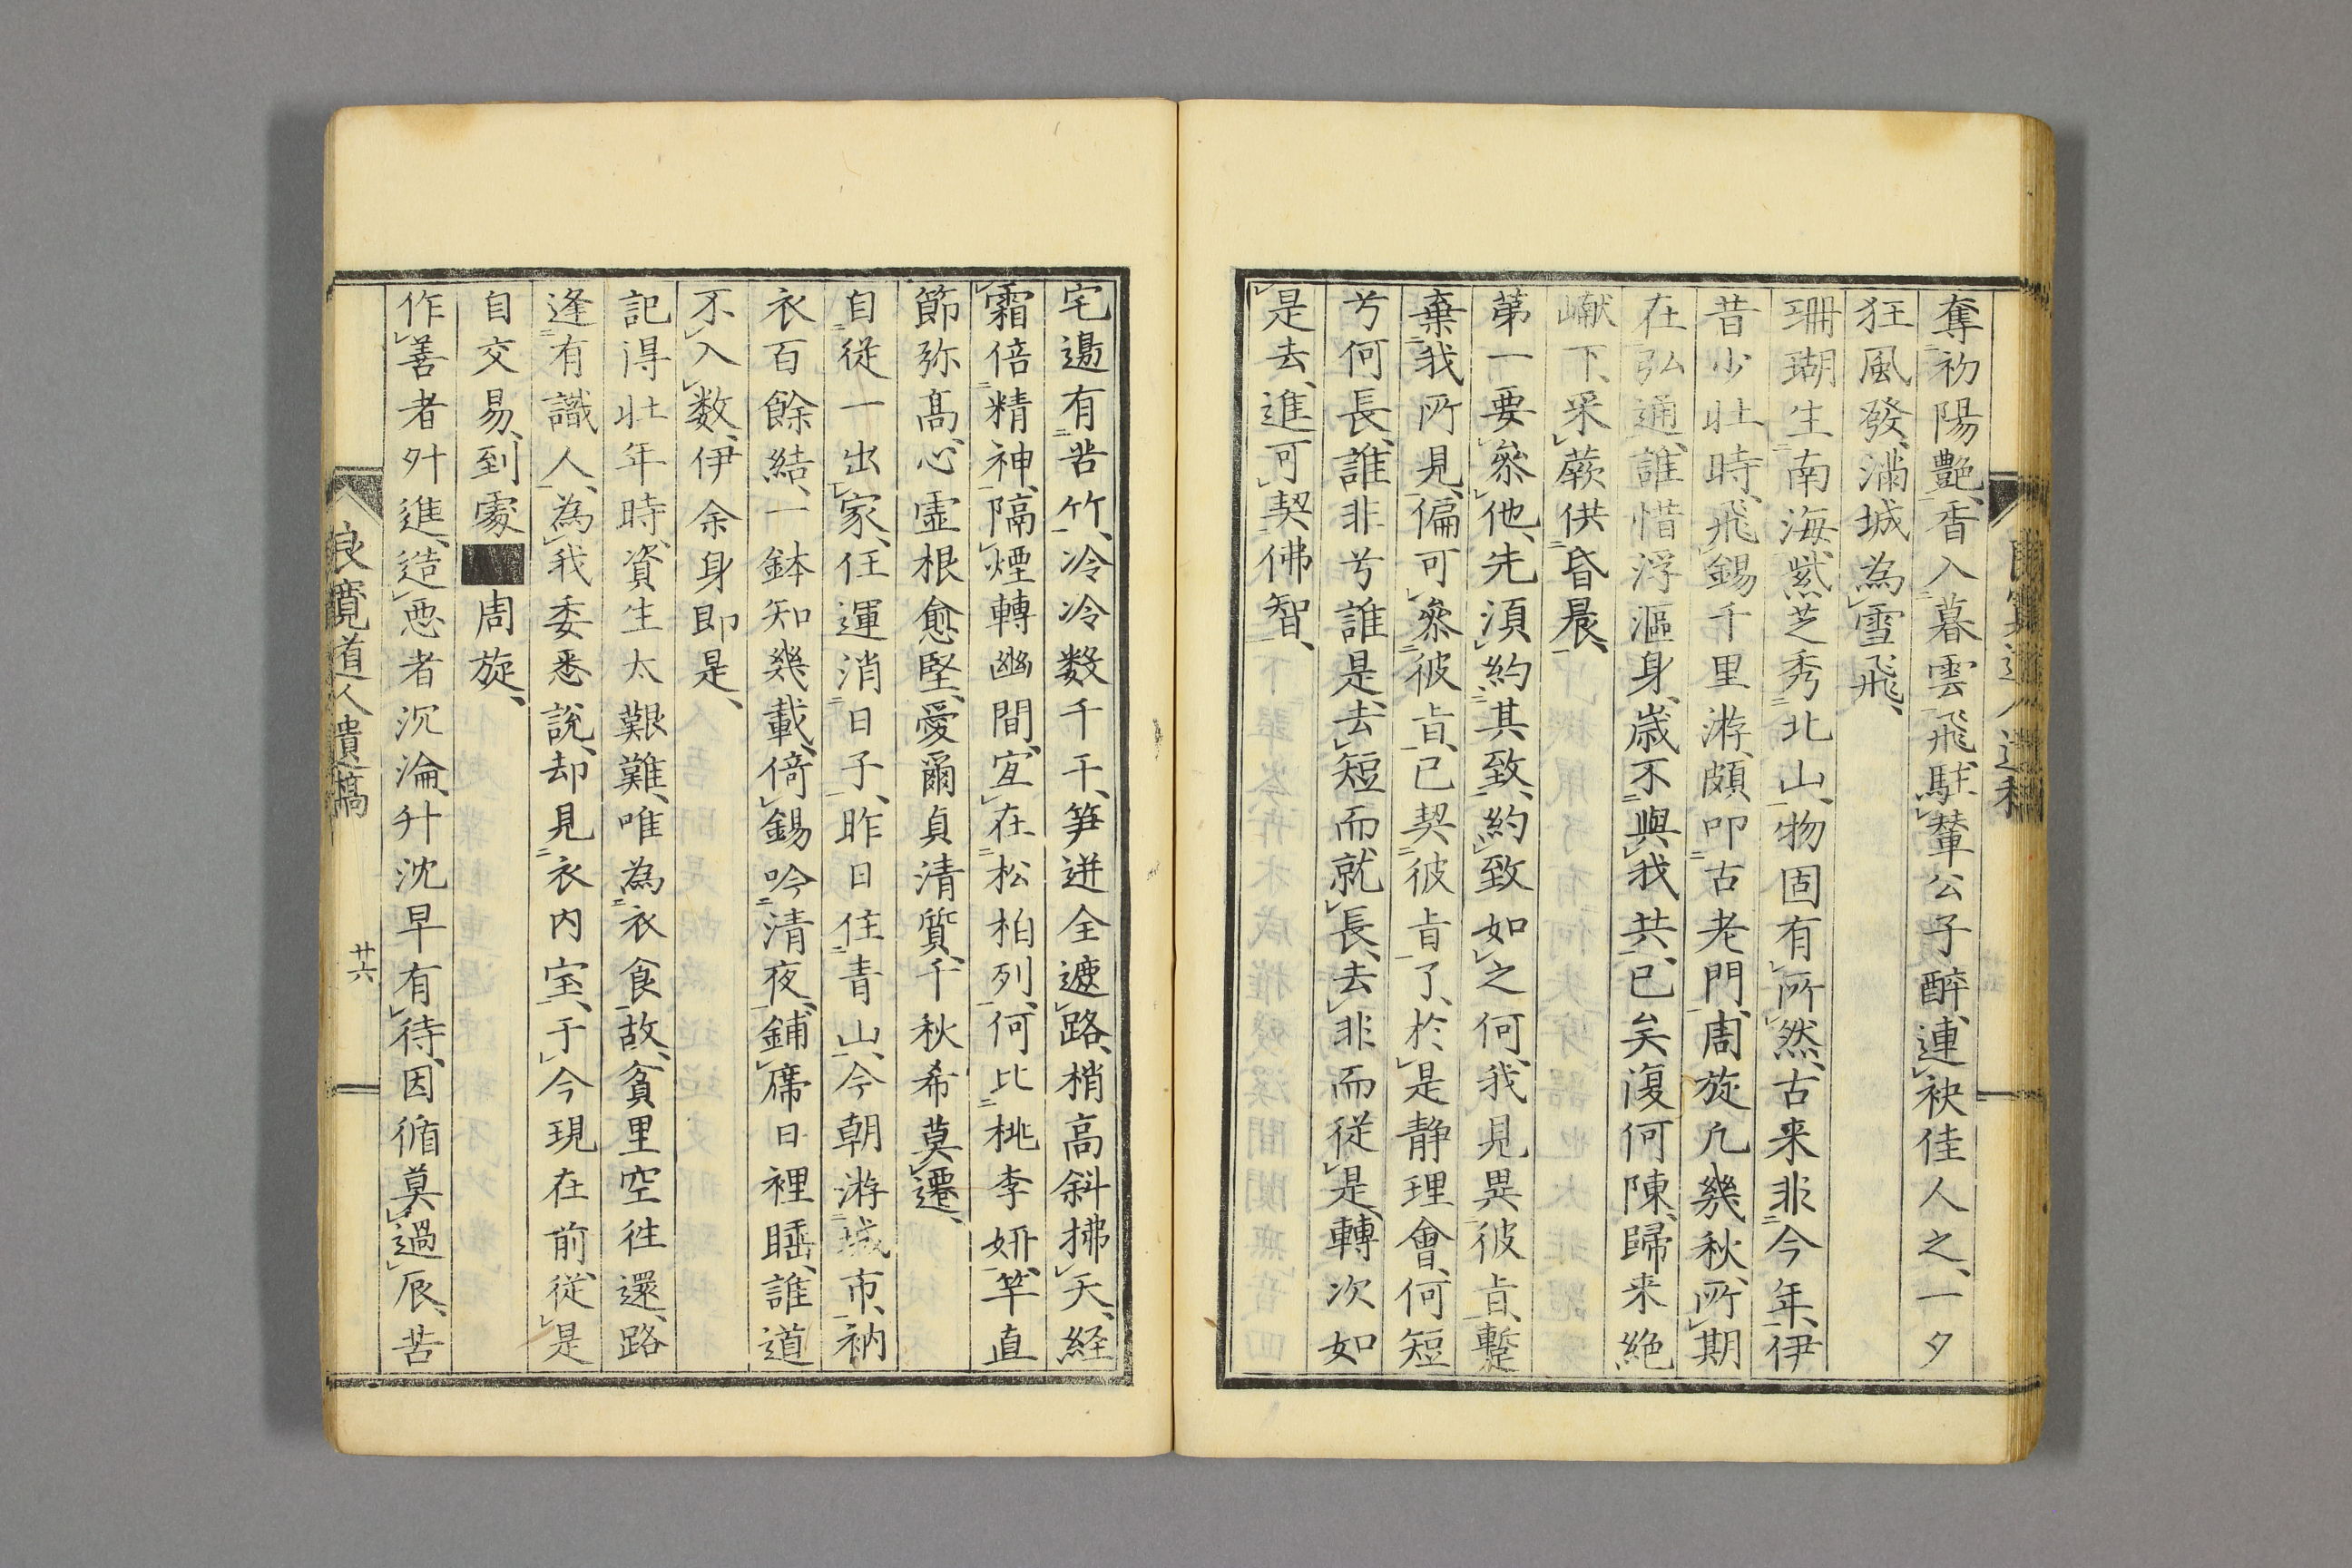 奪初陽艷、香入暮雲飛、駐輦公子醉、連袂佳人之、一夕
狂風發、滿城為雪飛、
珊瑚生南海、紫芝秀北山、物固有所然、古来非今年、伊
昔少壯時、飛錫千里游、頗叩古老門、周旋凡幾秋、所期
在弘通、誰惜浮漚身、歳不與我共、已矣復何陳、歸来絶
巘下、采蕨供昏晨、
第一要參他、先須約其致、約致如之何、我見異彼㫖、蹔
棄我所見、偏可參彼㫖、已契彼㫖了、於是静理會、何短
兮何長、誰非兮誰是、去短而就長、去非而従是、轉次如
是去、進可契佛智、
宅邉有苦竹、冷冷数千干、笋迸全遮路、梢高斜拂天、経
霜倍精神、隔煙轉幽間、宜在松柏列、何比桃李妍、竿直
節弥髙、心虚根愈堅、愛爾貞清質、千秋希莫遷、
自従一出家、任運消日子、昨日住青山、今朝游城市、衲
衣百餘結、一鉢知幾載、倚錫吟清夜、鋪席日裡睡、誰道
不入数、伊余身即是、
記得壯年時、資生太艱難、唯為衣食故、貧里空往還、路
逢有識人、為我委悉説、却見衣内宝、于今現在前、従是
自交易、到處■周旋、
作善者升進、造悪者沉淪、升沈早有待、因循莫過辰、苦
良寛道人遺稿
廿六